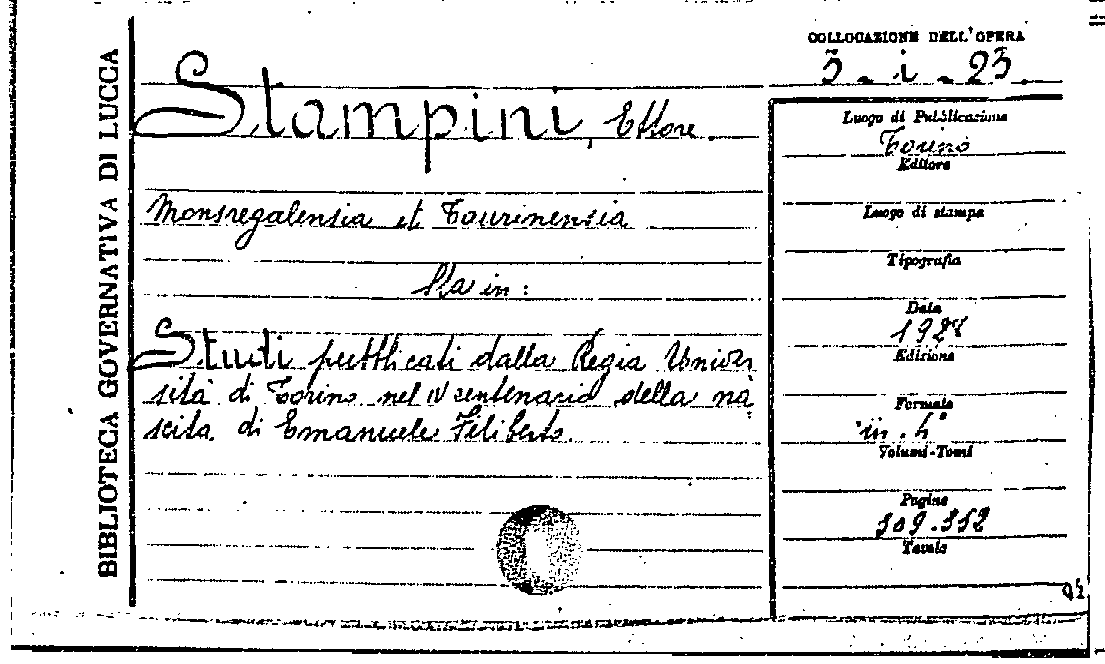 BIBLIOTECA GOVERNATIVA DI LUCCA
COLLOCAZIONE DELL'OPERA
5 - i - 23.
Stampini, Ettore.
Monsregalensia et Taurinensia
Sta in:
Studi pubblicati dalla Regia Univer
sità di Torino nel IV centenario della na
scita di Emanuele Filiberto.
Luogo di Pubblicazione
Torino
Editore
Luogo di stampa
Tipografia
Data
1928
Edizione
Formato
in. 4°
Volumi-Tomi
Pagine
309.352
Tavole